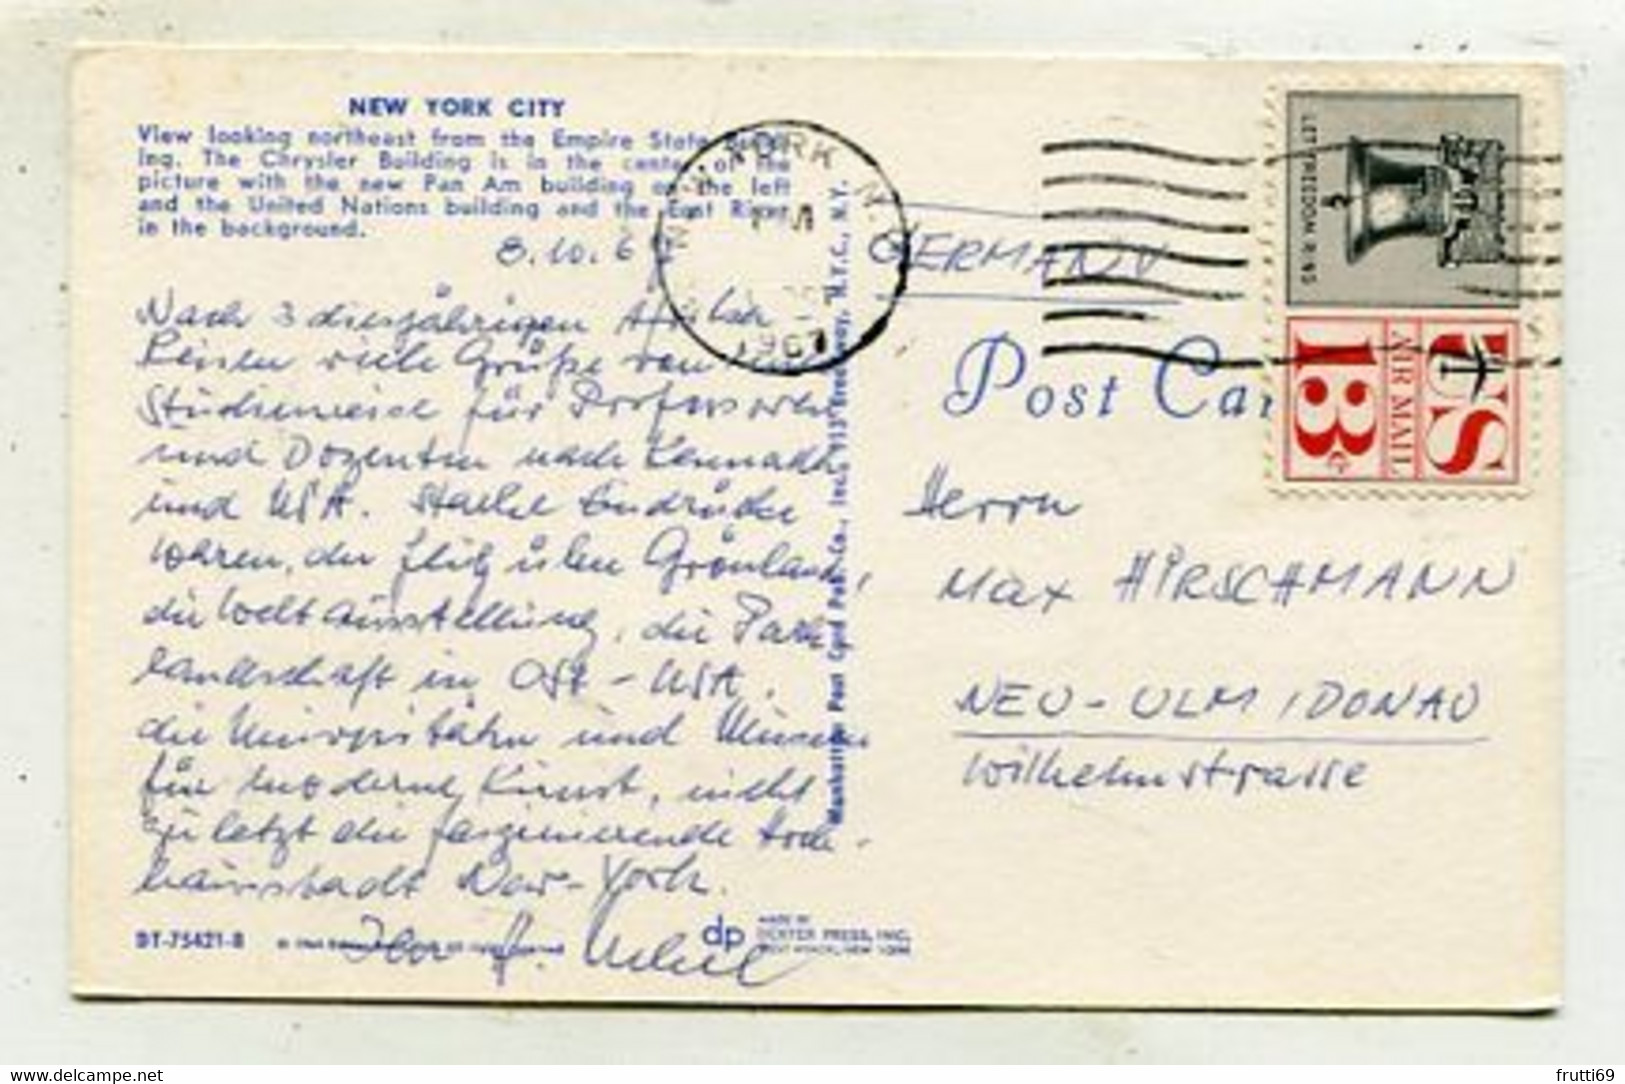 NEW YORK CITY
View looking northeast from the Empire State Build-
ing. The Chrysler Building is in the center of the
picture with the new Pan Am building on the left
and the United Nations building and the East River
in the background.
8.10.6
Nach 3 diesjährigen Afrika-
Reisen viele Grüße von
Studienreise für Professoren
und Dozenten nach Kannada
und USA. Starke Eindrücke
waren, der Flug über Grönland,
die Weltausstellung, die Park-
landschaft in Ost-USA,
die Universitäten und Museen
für moderne Kunst, nicht
zuletzt die faszinierende Hoch-
hausstadt New-York.
Ihr A.
DT-75421-B
dp MADE BY
DEXTER PRESS, INC.
WEST NYACK, NEW YORK
Manhattan Post Card Pub. Co., Inc., 913 Broadway, N.Y.C., N.Y.
NEW YORK N.Y.
PM
1967
GERMANY
Post Car
LET FREEDOM RING
US
AIR MAIL
13
Herrn
Max HIRSCHMANN
NEU-ULM /DONAU
Wilhelmstrasse
www.delcampe.net
frutti69